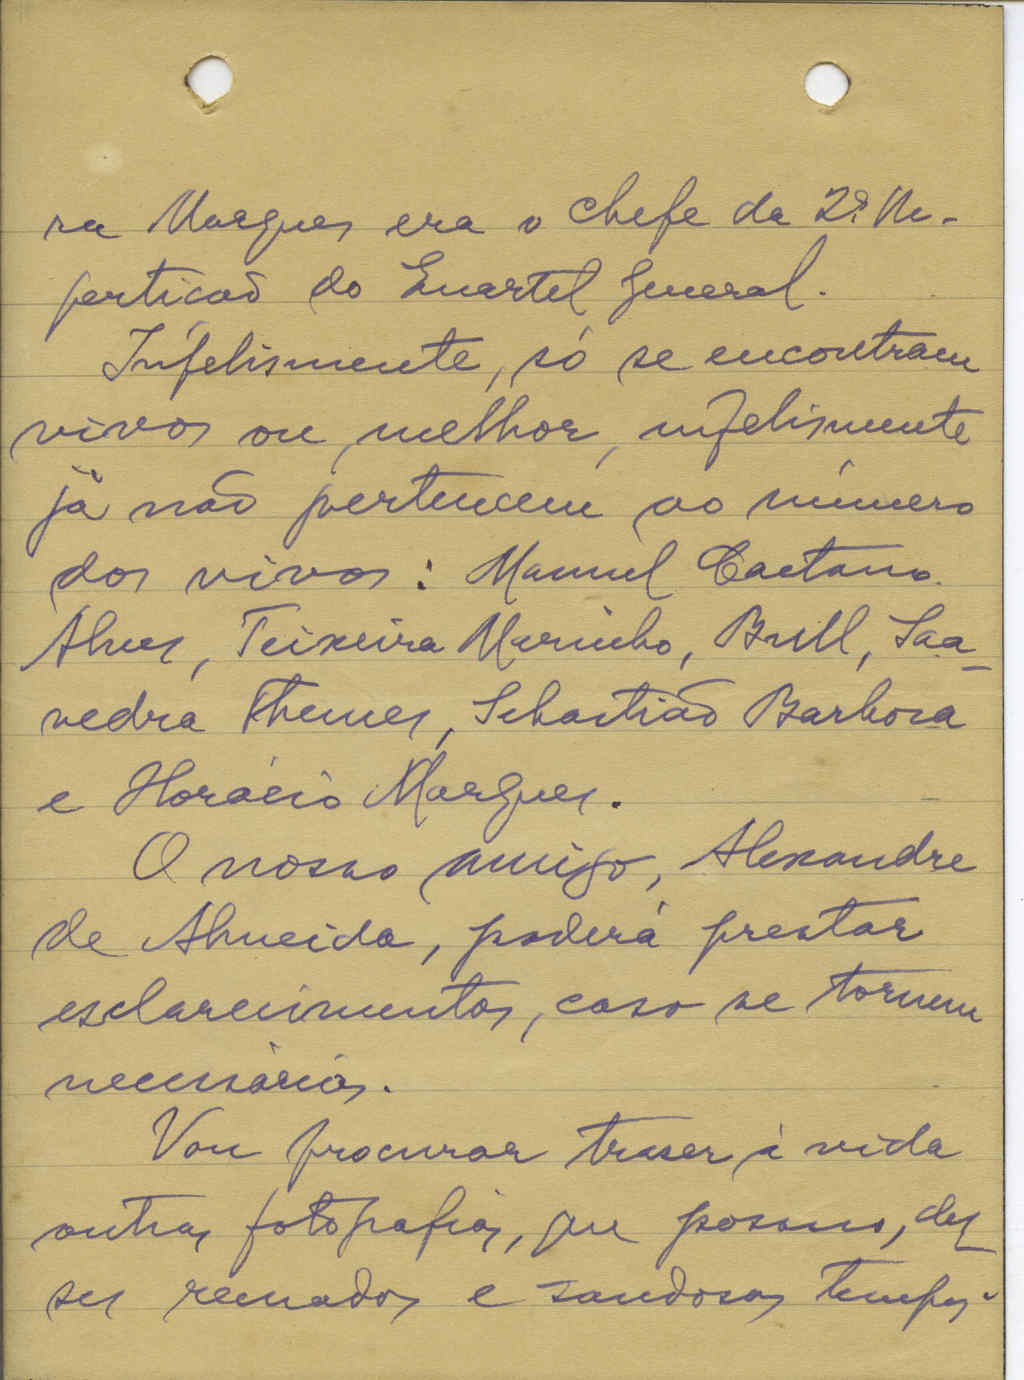 ra Marques era o chefe da 2ª Re-
partição do Quartel General.
Infelismente, só se encontram
vivos ou, melhor, infelismente
já não pertencem ao número
dos vivos: Manuel Caetano
Alves, Teixeira Marinho, Brull, Saa-
vedra Themes, Sebastião Barbosa
e Horácio Marques.
O nosso amigo, Alexandre
de Almeida, poderá prestar
esclarecimentos, caso se tornem
necessários.
Vou procurar traser à vida
outras fotografias, que possuo, des
ses recuados e saudosos tempos